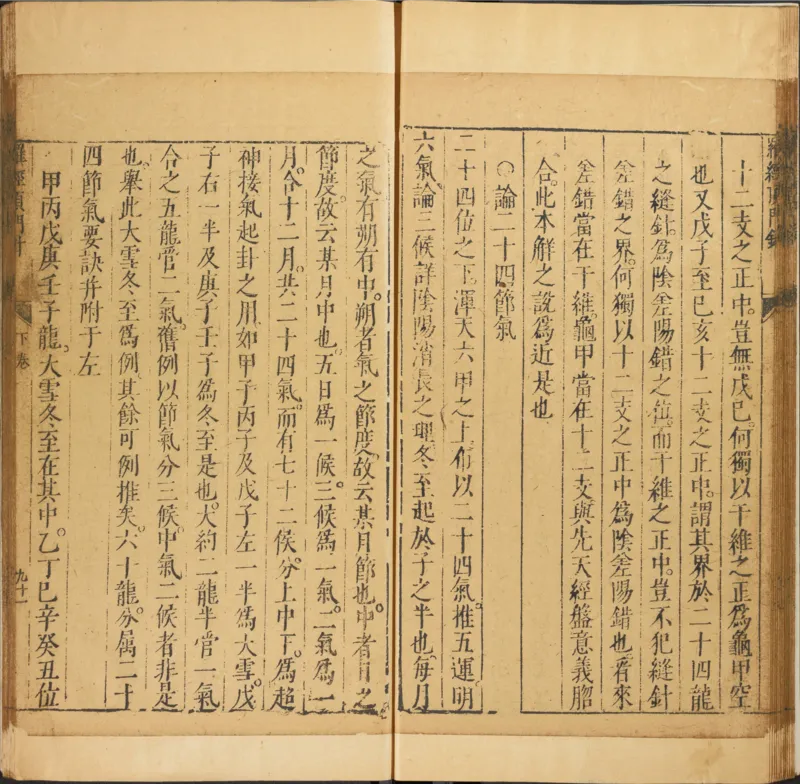 羅經頂門針
十二支之正中。豈無戊己。何獨以干維之正爲龜甲空
也。又戊子至己亥十二支之正中。謂其界於二十四龍
之縫針。爲陰差陽錯之位。而干維之正中。豈不犯縫針
差錯之界。何獨以十二支之正中爲陰差陽錯也。看來
差錯當在干維。龜甲當在十二支。與先天經盤意義脗
合。此本解之說爲近是也
○論二十四節氣
二十四位之下。渾天六甲之上。布以二十四氣。推五運。明
六氣。論三候。詳陰陽消長之理。冬至起於子之半也。每月
之氣有朔有中。朔者氣之節度。故云某月節也。中者月之
節度。故云某月中也。五日爲一候。三候爲一氣。二氣爲一
月。合十二月。共二十四氣。而有七十二候。分上中下。爲超
神接氣起卦之用。如甲子丙子及戊子左一半爲大雪。戊
子右一半及庚子壬子爲冬至是也。大約二龍半管一氣
合之五龍管二氣。舊例以節氣分三候。中氣二候者非是
也。舉此大雪冬至爲例。其餘可例推矣。六十龍。分属二十
四節氣要訣幷附于左
甲丙戊庚壬子龍。大雪冬至在其中。乙丁巳辛癸丑位
羅經頂門針
下卷
九十一